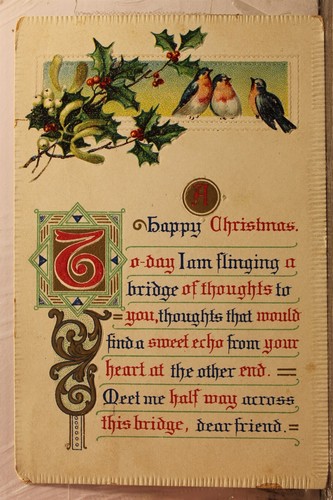 A
Happy Christmas.
To-day I am flinging a
bridge of thoughts to
you, thoughts that would
find a sweet echo from your
heart at the other end. =
Meet me half way across
this bridge, dear friend. =